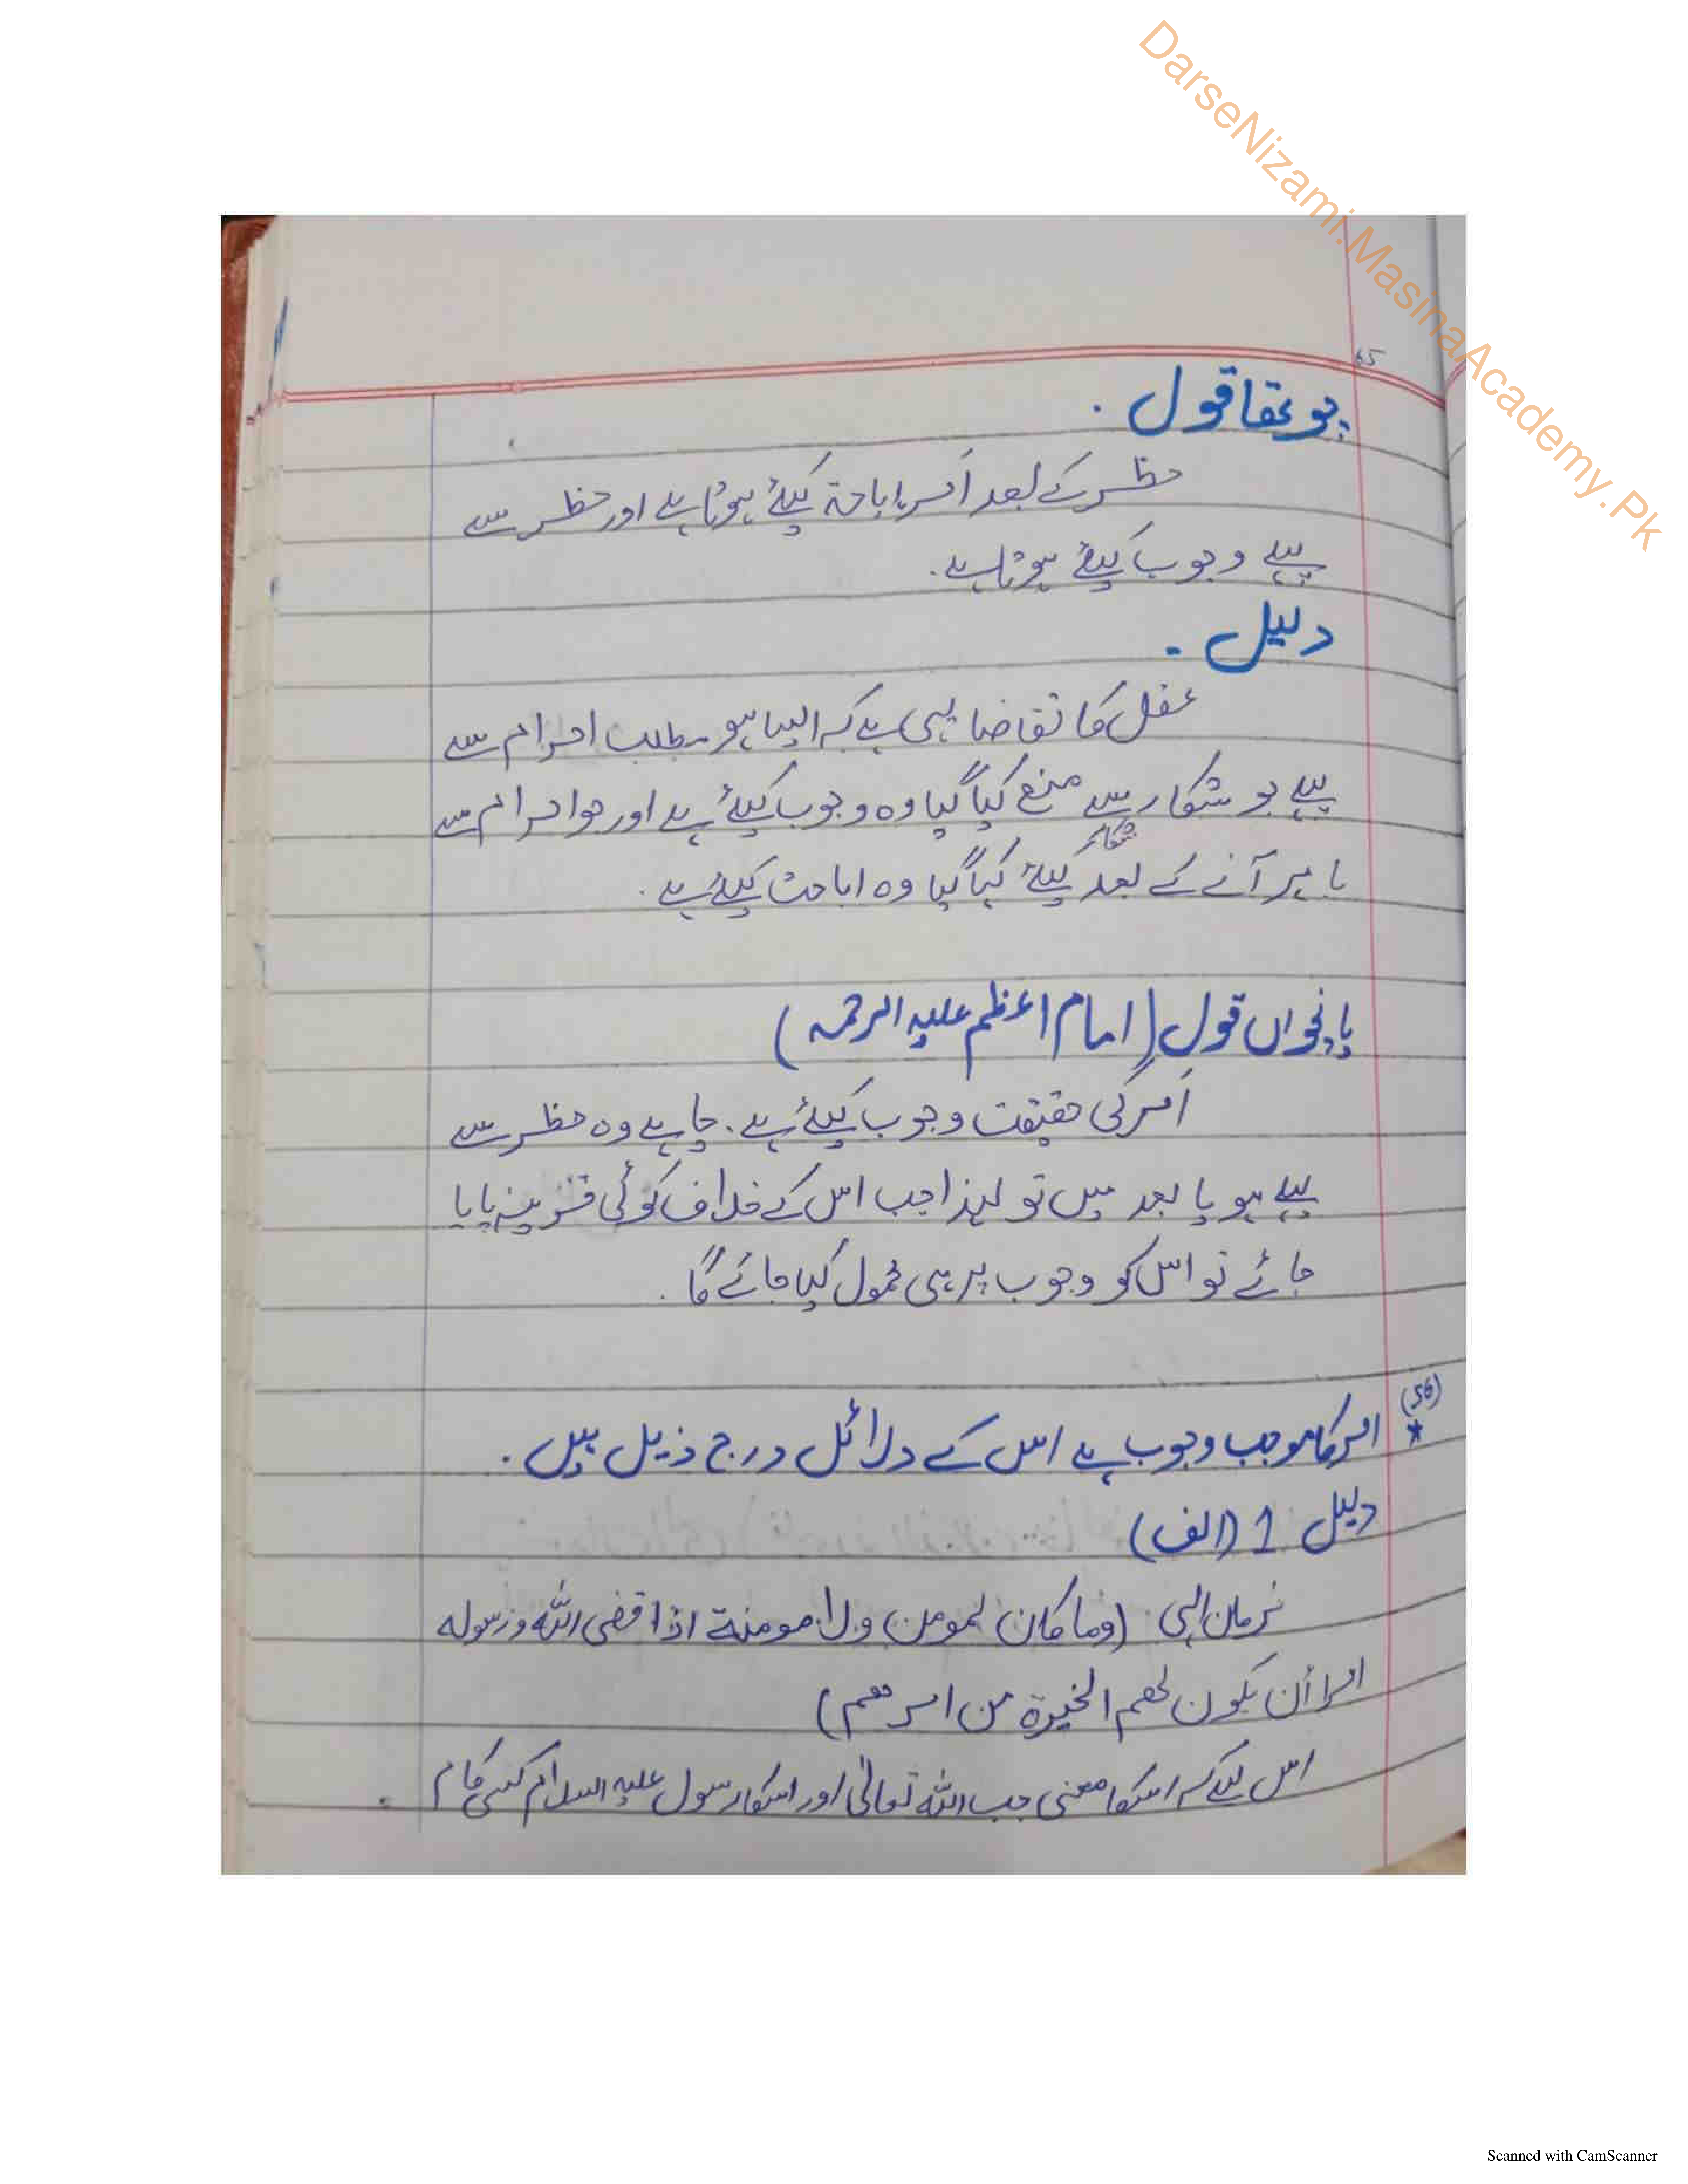 DarseNizami.MasinaAcademy.Pk
چوتھا قول .
حظر کے بعد اَمر اباحۃ کیلئے ہوتا ہے اور حظر سے
پہلے وجوب کیلئے ہوتا ہے.
دلیل .
عقل کا تقاضا یہی ہے کہ ایسا ہو مطلب احرام سے
پہلے جو شکار سے منع کیا گیا وہ وجوب کیلئے ہے اور جو احرام سے
باہر آنے کے بعد شکار کیلئے کیا گیا وہ اباحت کیلئے ہے.
پانچواں قول (امام اعظم علیہ الرحمہ)
اَمر کی حقیقت وجوب کیلئے ہے. چاہے وہ حظر سے
پہلے ہو یا بعد میں تو لہذا جب اس کے خلاف کوئی قرینہ پایا
جائے تو اس کو وجوب پر ہی محمول کیا جائے گا.
(56)
* امر کا موجب وجوب ہے اس کے دلائل درج ذیل ہیں.
دلیل 1 (الف)
فرمان الہی (وما کان لمومن ولا مومنۃ اذا قضی اللہ ورسولہ
امرا أن یکون لھم الخیرۃ من امرھم)
اس لیے کہ اسکا معنی جب اللہ تعالیٰ اور اسکا رسول علیہ السلام کسی کام
Scanned with CamScanner